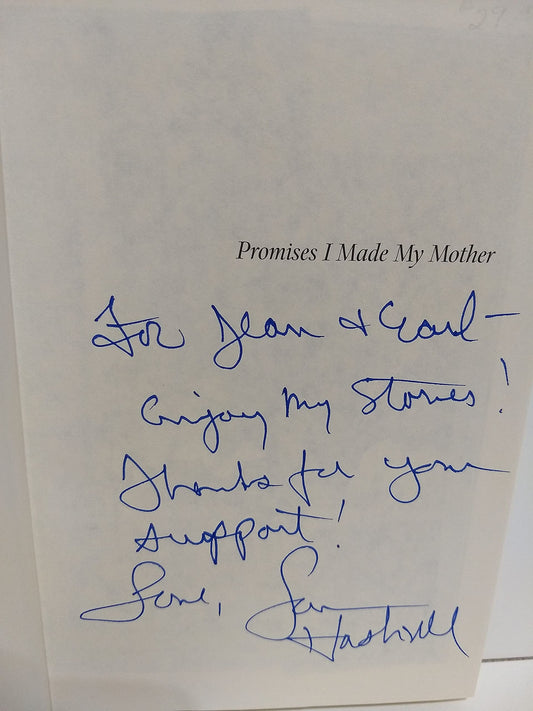 29
Promises I Made My Mother
For Jean & Earl –
Enjoy My Stories!
Thanks for your
support!
Love, Sam
Haskell